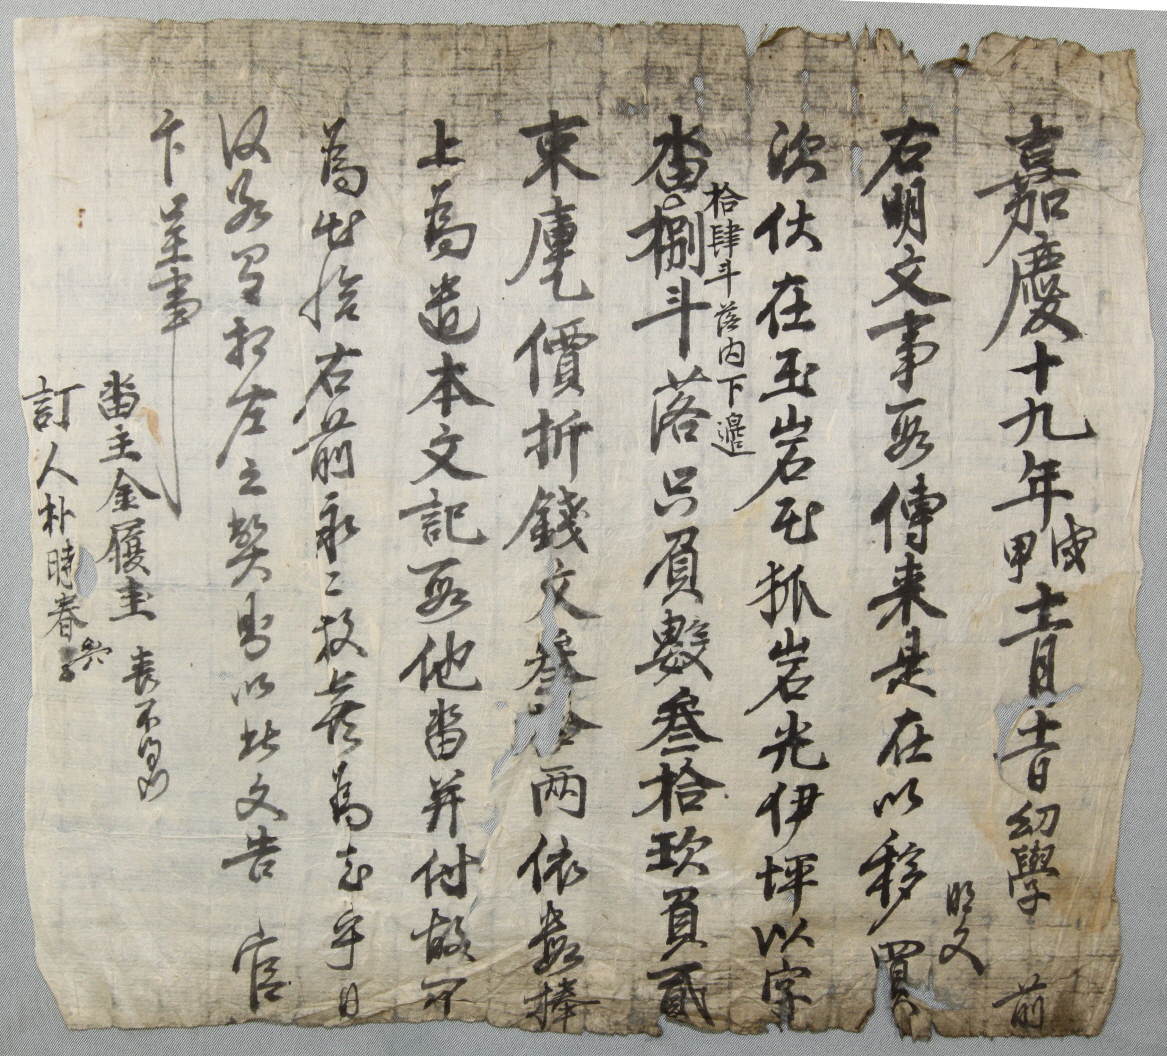 嘉慶十九年甲戌十二月十一日幼學 前
明文
右明文事段傳来是在以移買
次伏在玉岩面狐岩光伊坪以字
畓捌斗落只負數叁拾玖負貳
拾肆斗落内下邉
束庫價折錢文叁拾兩依數捧
上爲遣本文記段他畓并付故不
爲出給右前永永放賣爲去乎日
後若有相左之弊則以此文告 官
卞呈事
畓主金履圭 喪不着
訂人朴時春